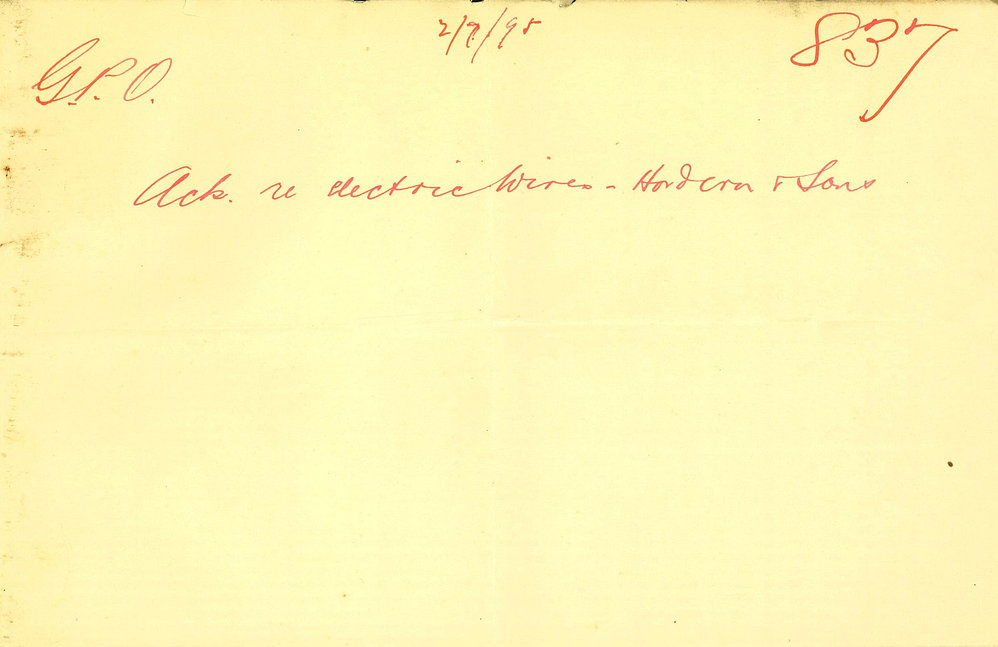 2/7/98
837
G.P.O.
Ack. re electric Wires - Hordern & Sons